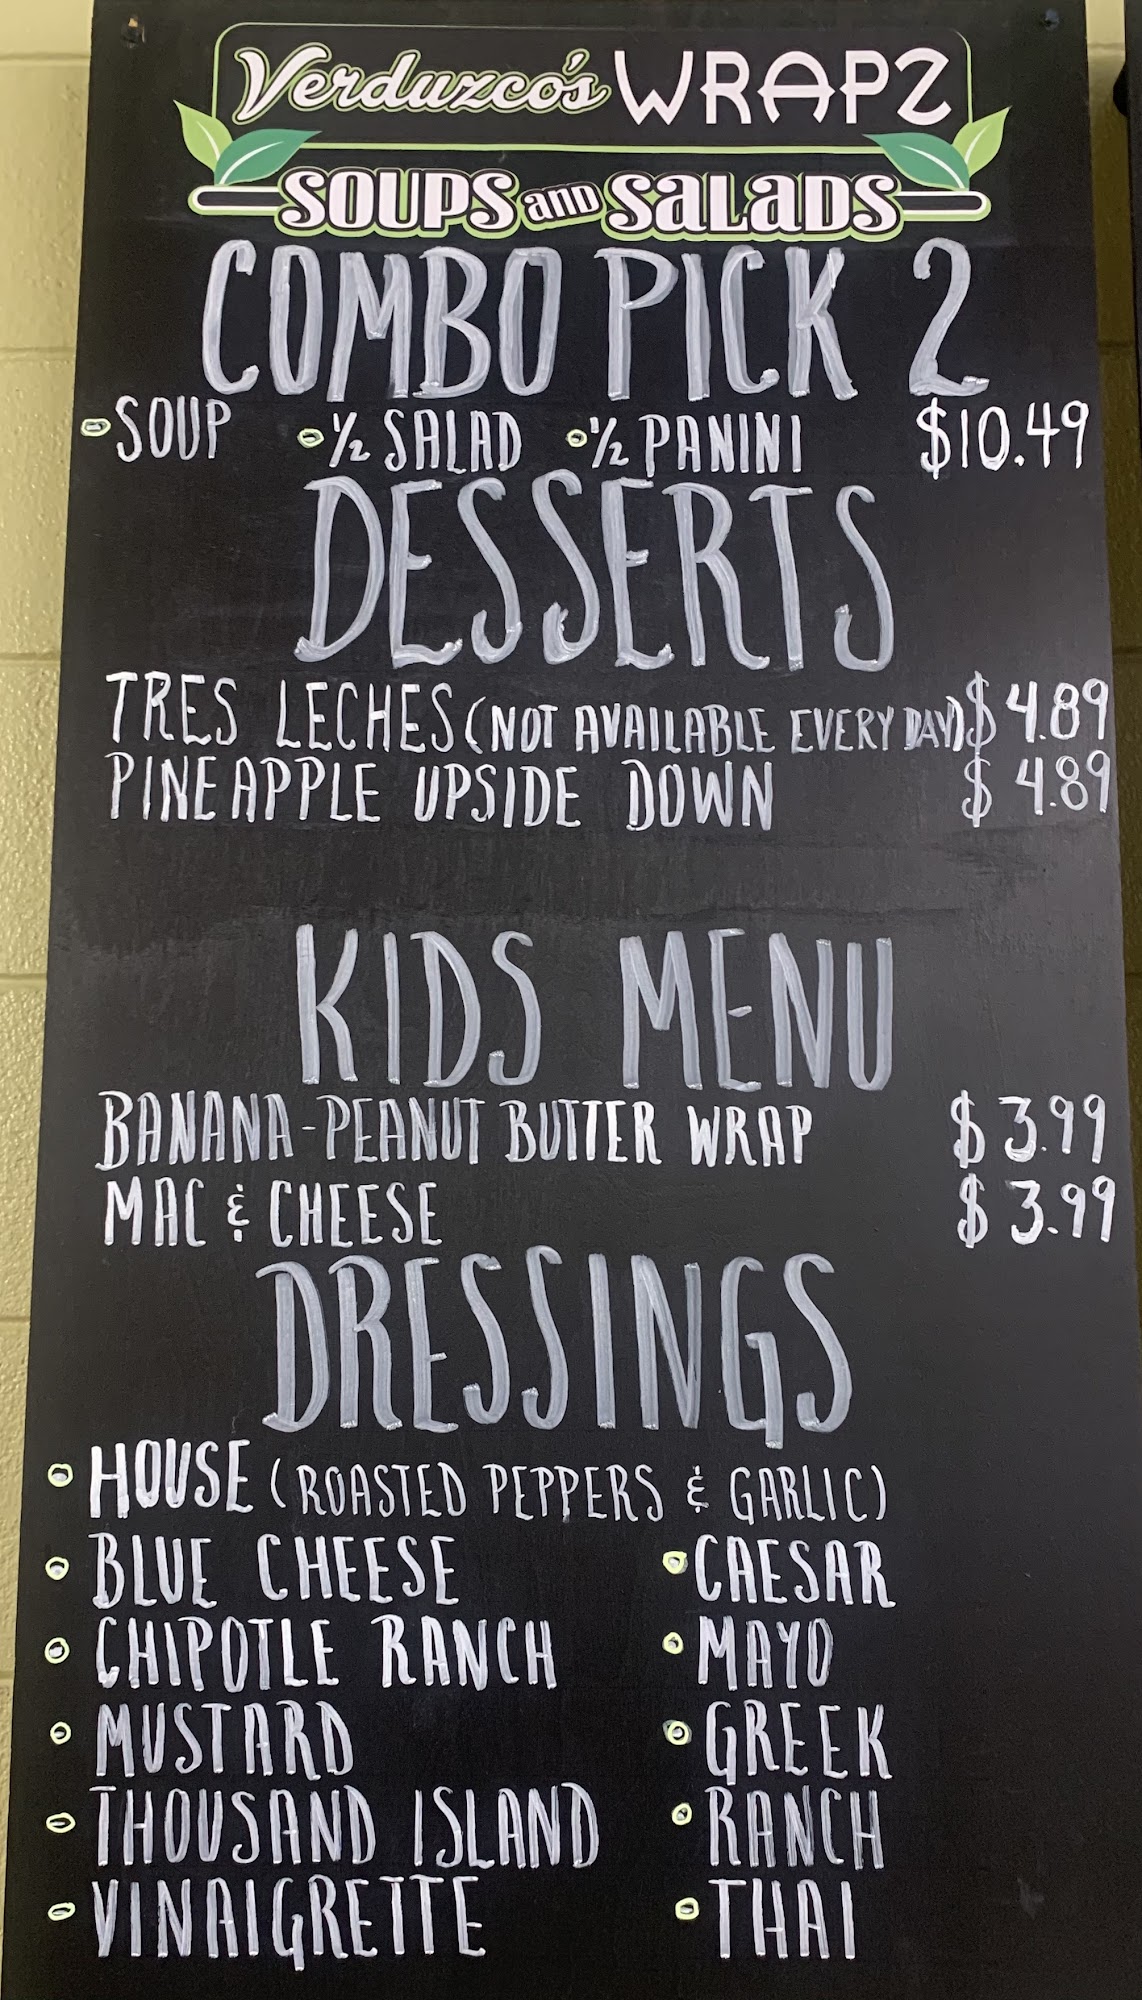 Verduzco's WRAPZ
SOUPS AND SALADS
COMBO PICK 2
SOUP ½ SALAD ½ PANINI $10.49
DESSERTS
TRES LECHES (NOT AVAILABLE EVERY DAY) $4.89
PINEAPPLE UPSIDE DOWN $4.89
KIDS MENU
BANANA-PEANUT BUTTER WRAP $3.99
MAC & CHEESE $3.99
DRESSINGS
HOUSE (ROASTED PEPPERS & GARLIC)
BLUE CHEESE CAESAR
CHIPOTLE RANCH MAYO
MUSTARD GREEK
THOUSAND ISLAND RANCH
VINAIGRETTE THAI